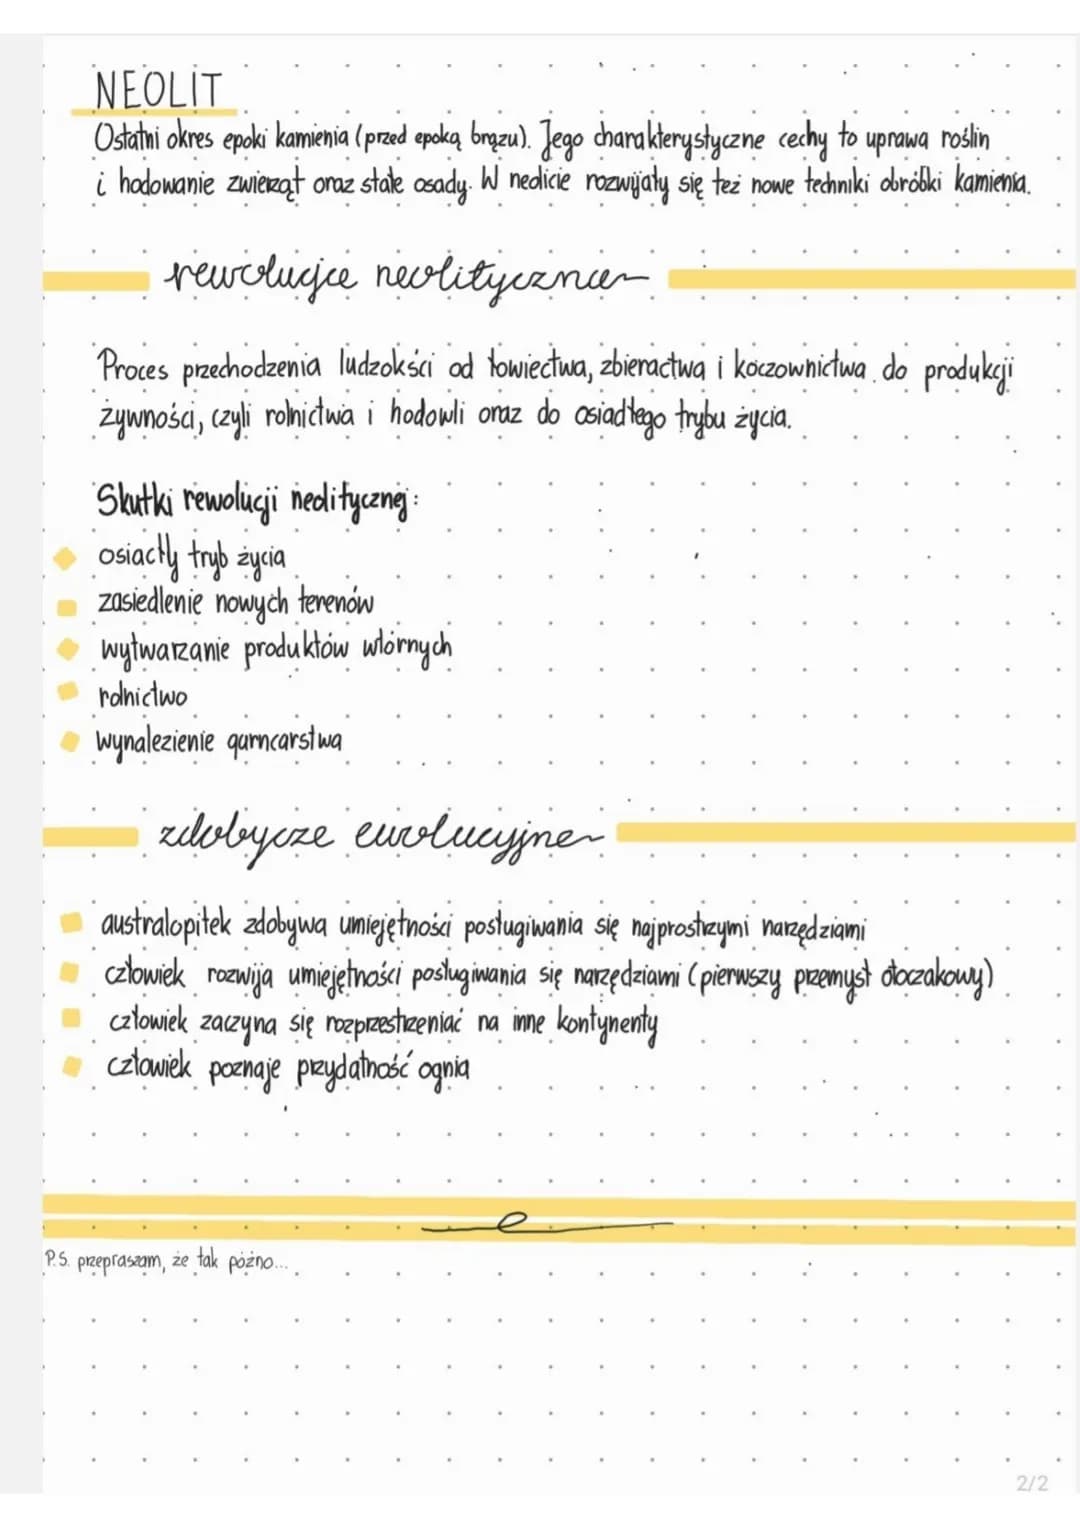 NEOLIT
Ostatni okres epoki kamienia (przed epoką brązu). Jego charakterystyczne cechy to uprawa roślin
i hodowanie zwierząt oraz stałe osady. W neolicie rozwijały się też nowe techniki obróbki kamienia.
rewolucja neolityczna
Proces przechodzenia ludzokści od łowiectwa, zbieractwa i koczownictwa do produkcji
żywności, czyli rolnictwa i hodowli oraz do osiadłego trybu życia.
Skutki rewolucji neolitycznej:
osiadły tryb życia
zasiedlenie nowych terenów
wytwarzanie produktów wtórnych
rolnictwo
wynalezienie garncarstwa
zdobycze ewolucyjne
australopitek zdobywa umiejętności posługiwania się najprostrzymi narzędziami
człowiek rozwija umiejętności posługiwania się narzędziami (pierwszy przemysł otoczakowy)
człowiek zaczyna się rozprzestrzeniać na inne kontynenty
człowiek poznaje przydatność ognia
P.S. przepraszam, że tak późno...
2/2